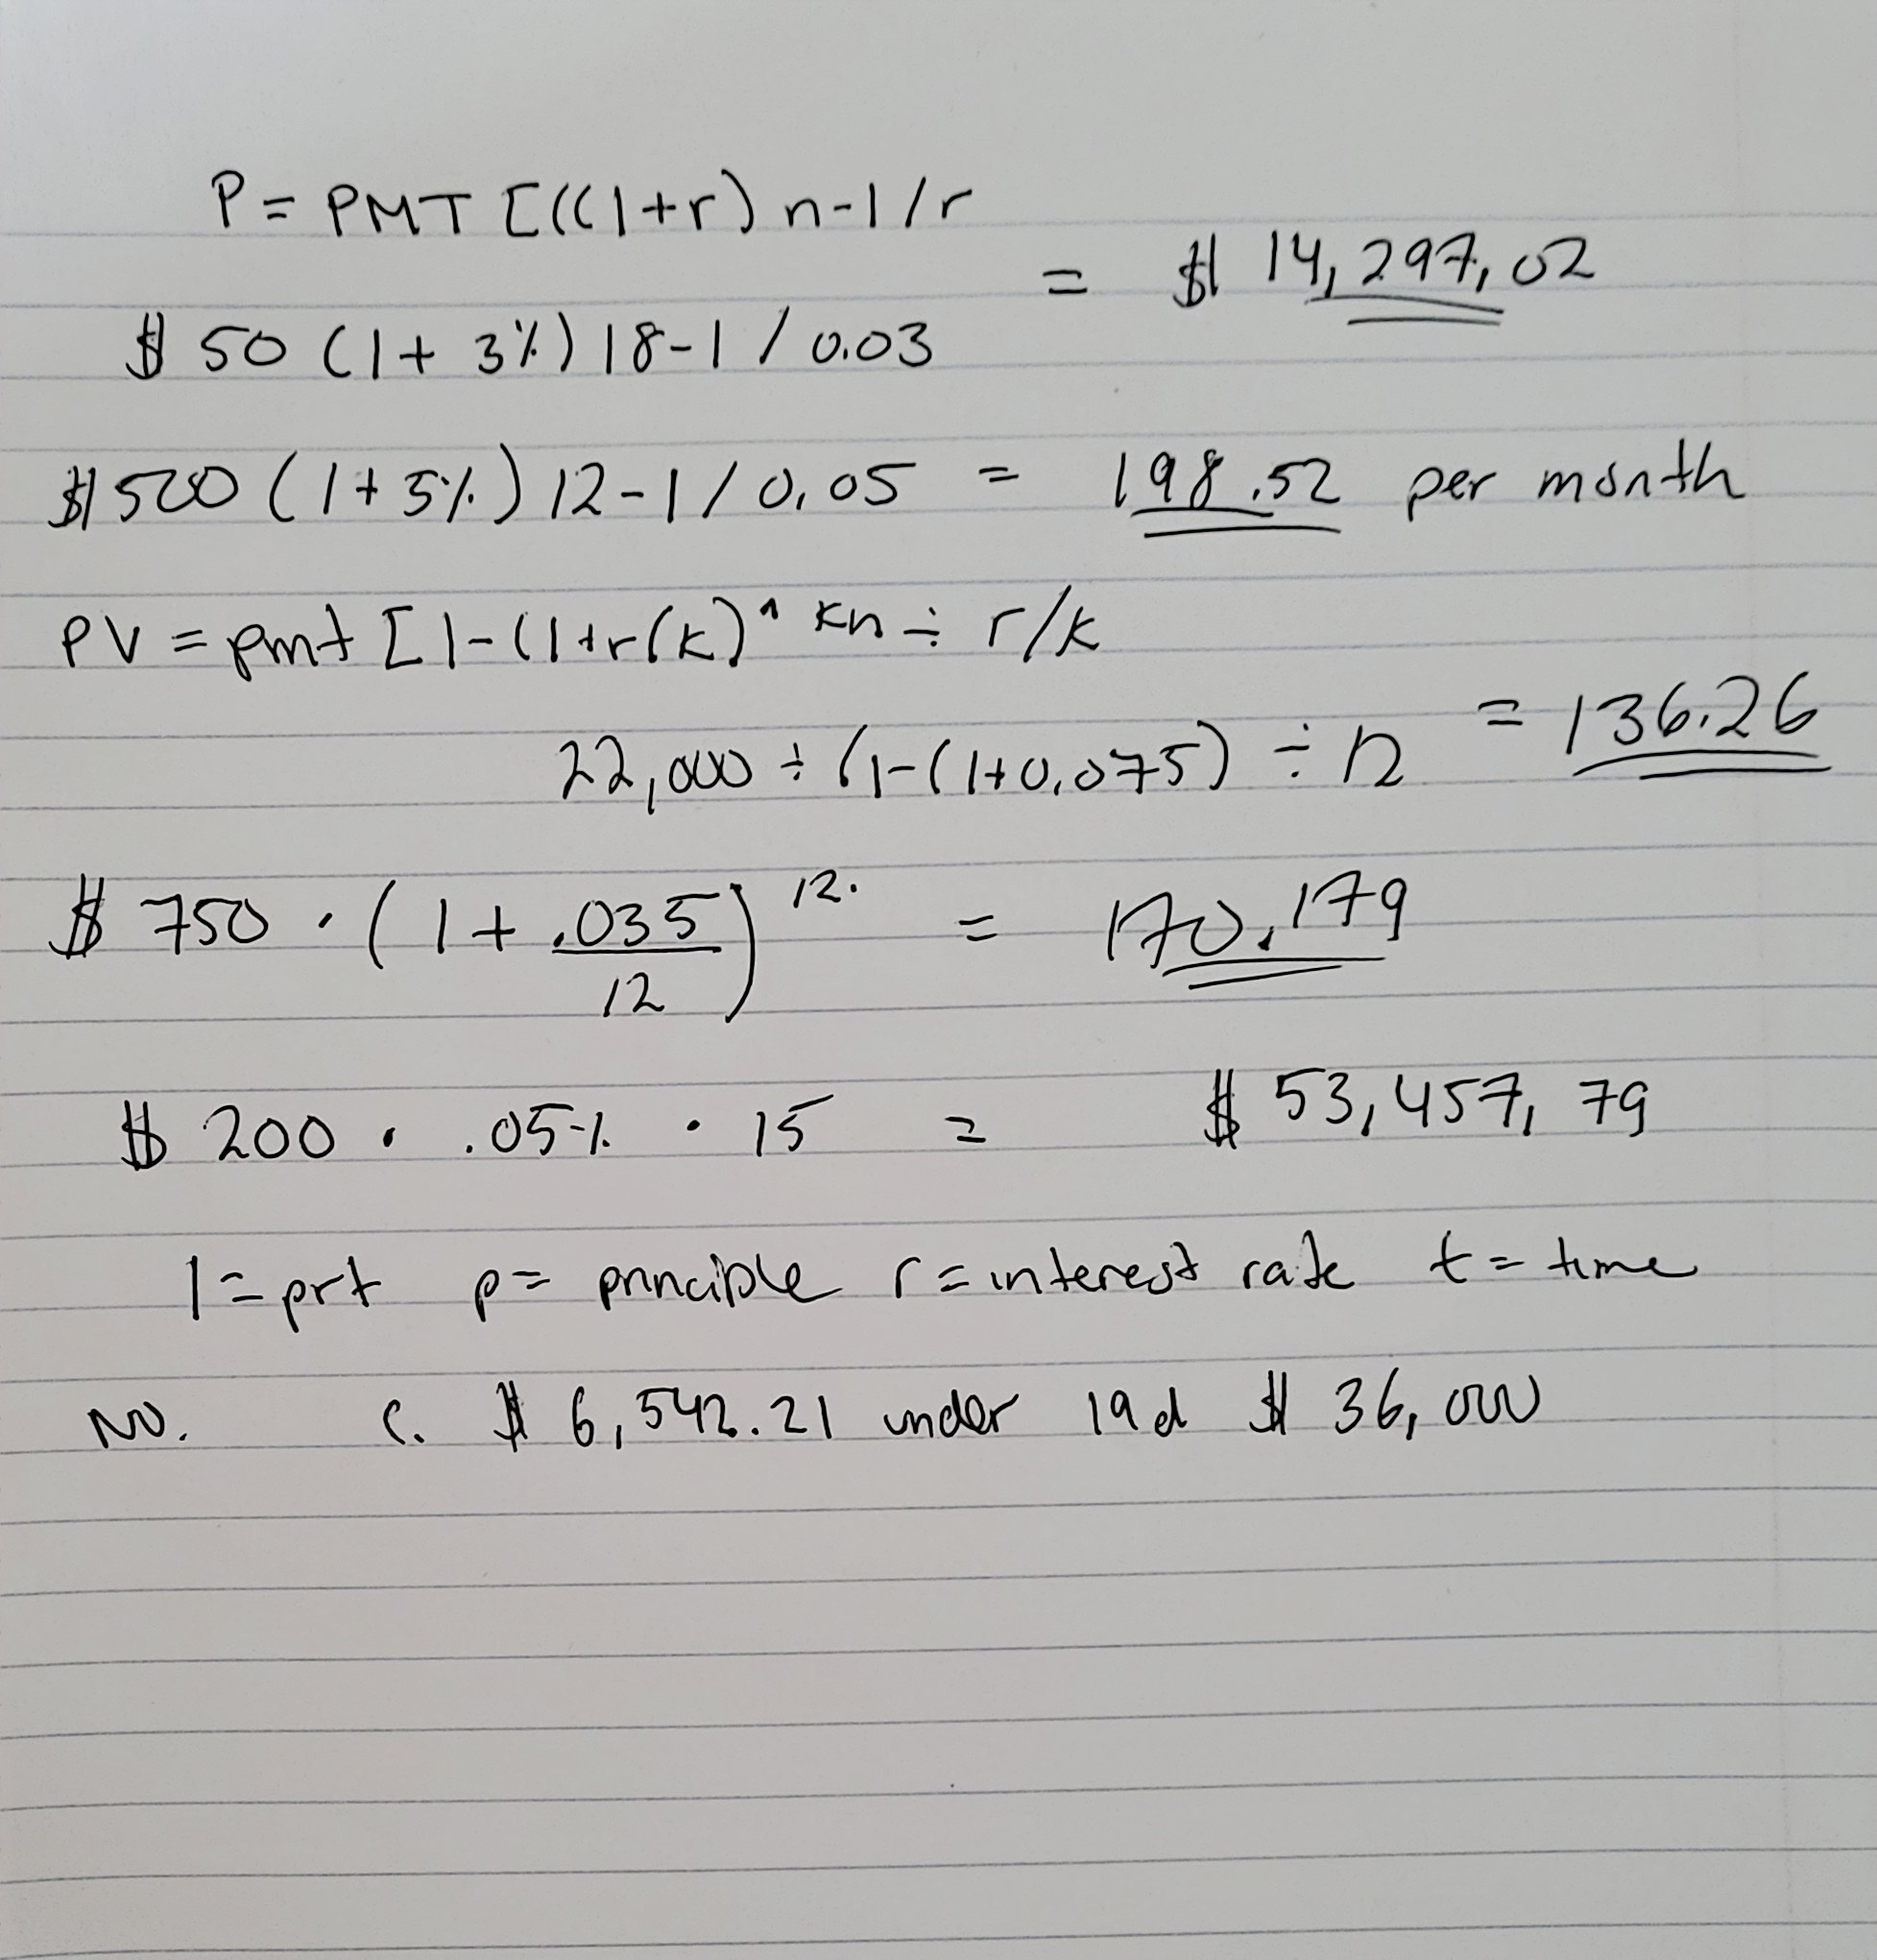 P = PMT [((1+r) n-1/r
= $ 14,297,02
$ 50 (1+ 3%) 18-1 / 0.03
$500 (1+5%) 12-1 / 0,05 = 198.52 per month
PV = pmt [1-(1+r(k)^ kn ÷ r/k
22,000 ÷ (1-(1+0.075) ÷ 12 = 136.26
$ 750 · (1 + .035/12)^12. = 170,179
$ 200 · .05% · 15 = $ 53,457, 79
I = prt p = principle r = interest rate t = time
NO. C. $ 6,542.21 under $ 36,000